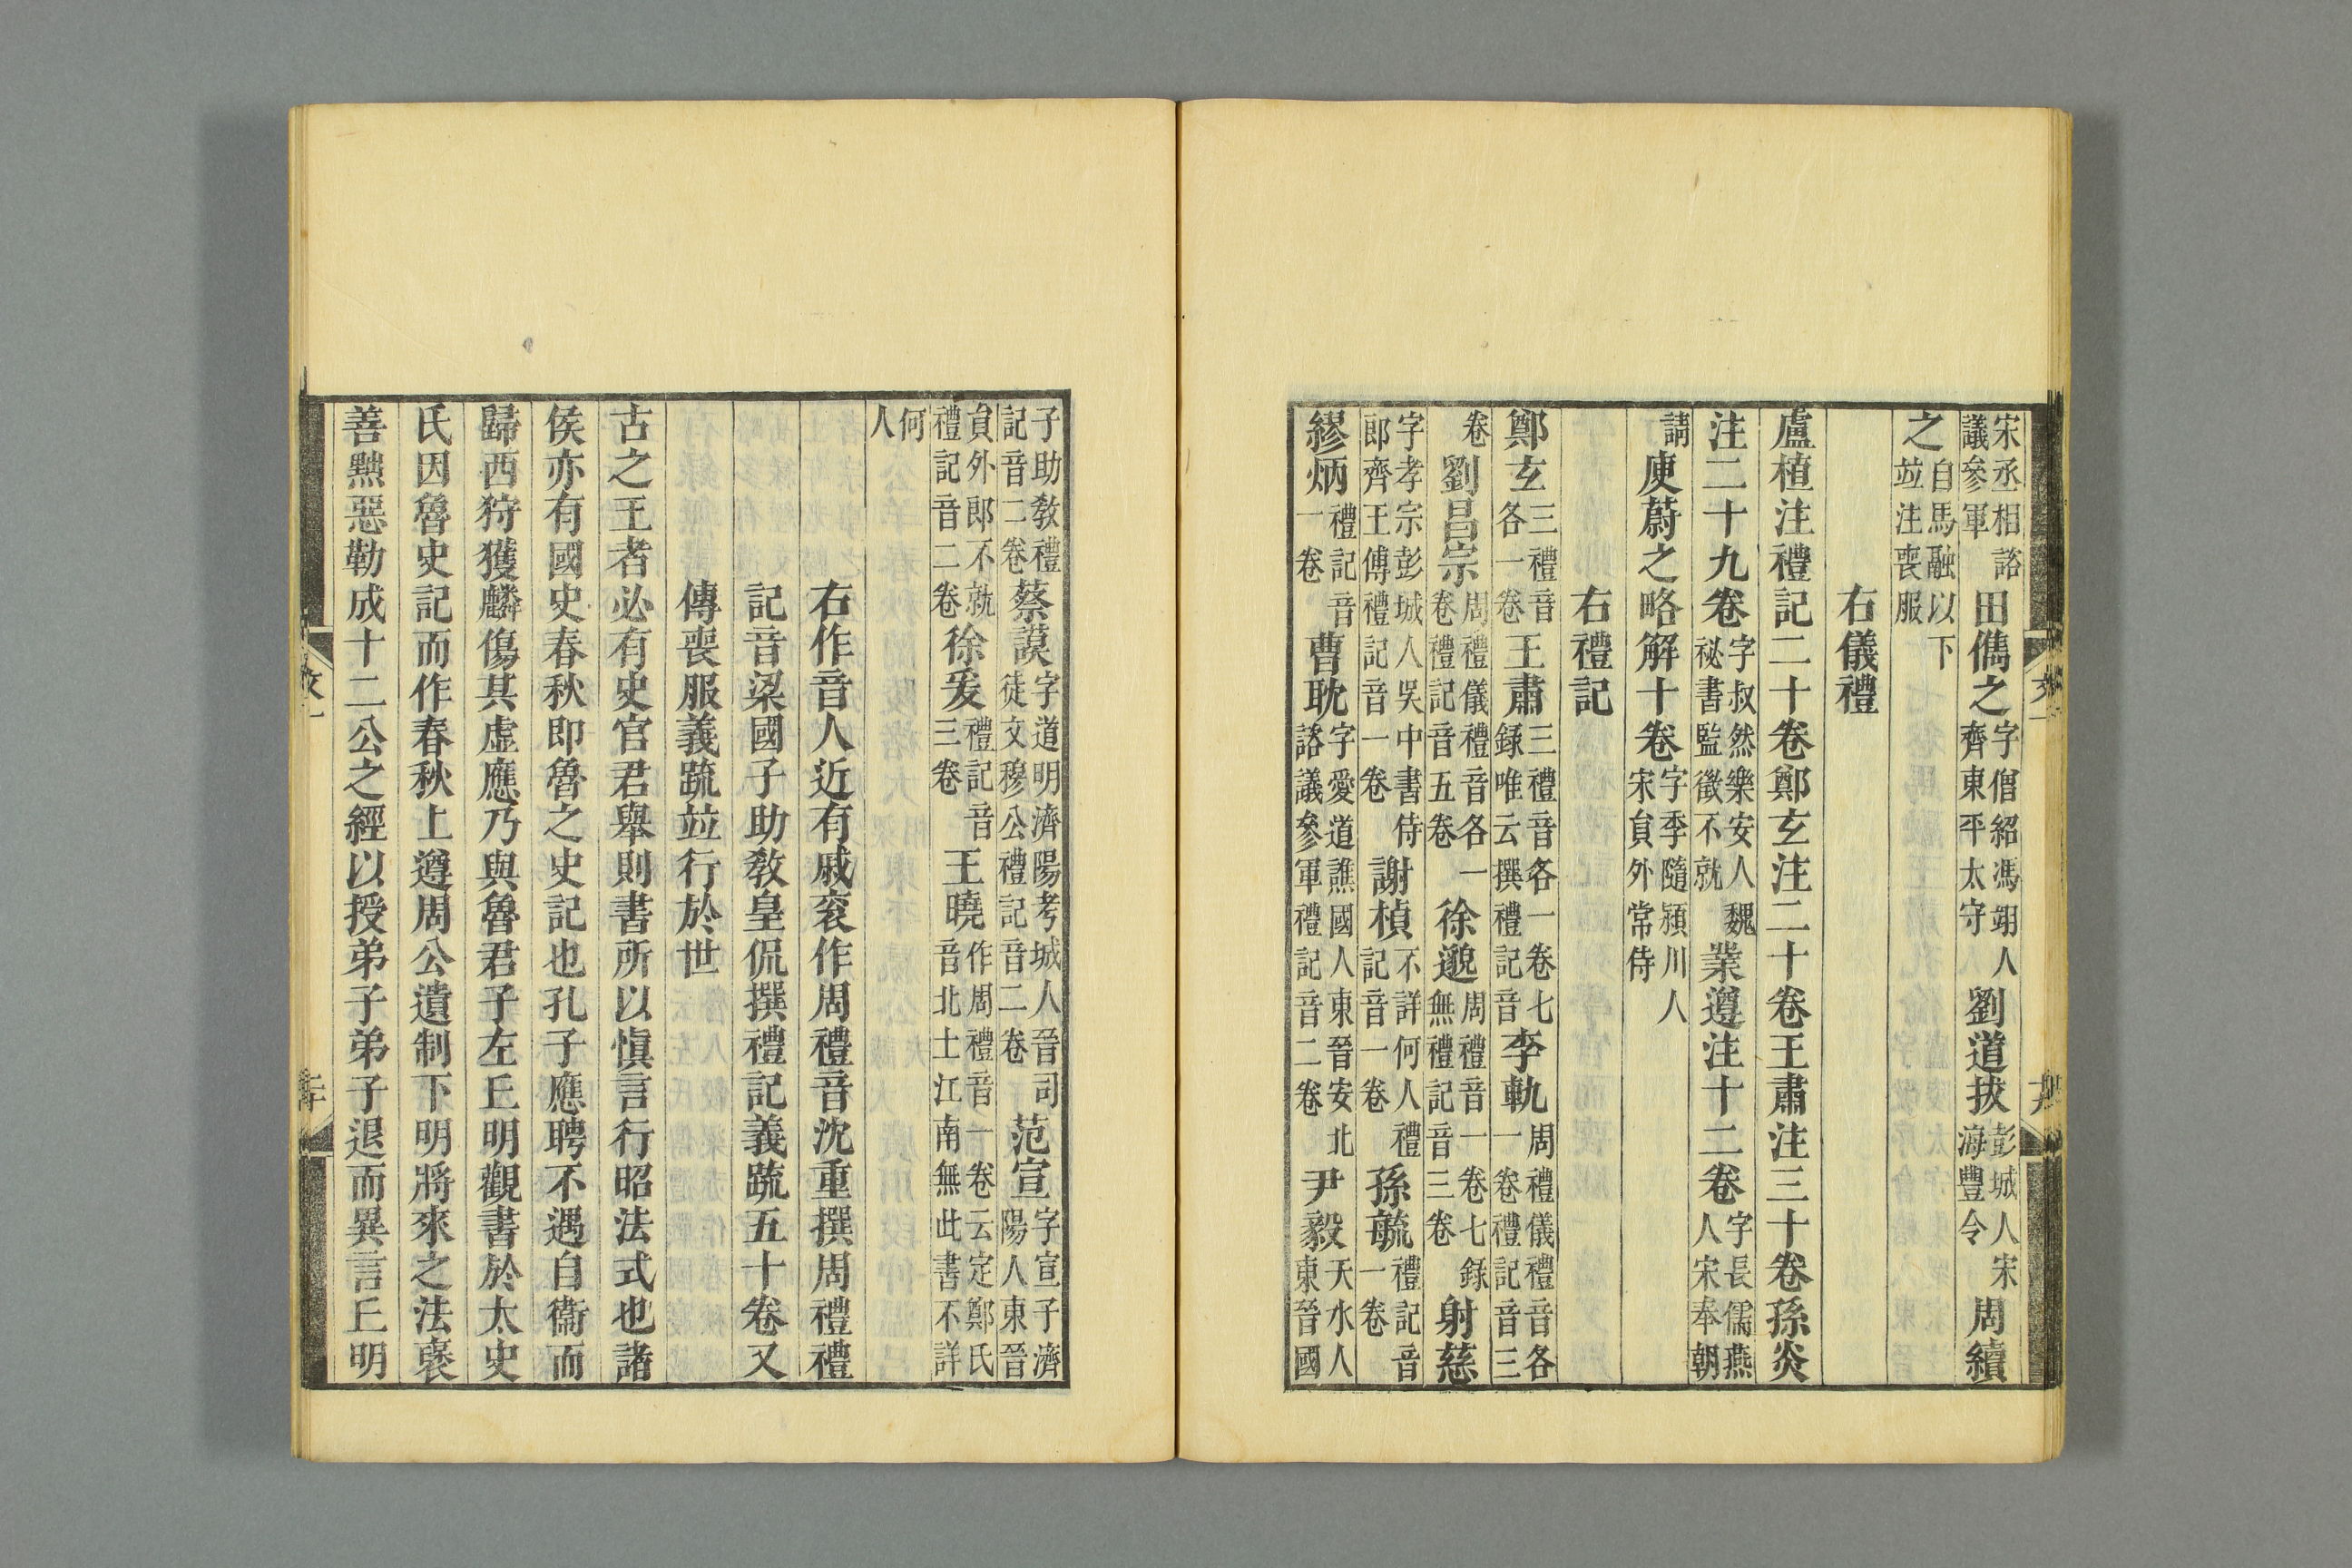 宋丞相諮議參軍田儁之字僧紹馮翊人齊東平太守劉道拔彭城人宋海豐令周續
之自馬融以下竝注喪服
右儀禮
盧植注禮記二十卷鄭玄注二十卷王肅注三十卷孫炎
注二十九卷字叔然樂安人魏祕書監徵不就業遵注十二卷字長儒燕人宋奉朝
請庾蔚之略解十卷字季隨潁川人宋員外常侍
右禮記
鄭玄三禮音各一卷王肅三禮音各一卷七錄唯云撰禮記音李軌周禮儀禮音各一卷禮記音三
卷劉昌宗周禮儀禮音各一卷禮記音五卷徐邈周禮音一卷七錄無禮記音三卷射慈
字孝宗彭城人吳中書侍郎齊王傅禮記音一卷謝楨不詳何人禮記音一卷孫毓禮記音一卷
繆炳禮記音一卷曹耽字愛道譙國人東晉安北諮議參軍禮記音二卷尹毅天水人東晉國
子助敎禮記音二卷蔡謨字道明濟陽考城人晉司徒文穆公禮記音二卷范宣字宣子濟陽人東晉
員外郎不就禮記音二卷徐爰禮記音三卷王曉作周禮音一卷云定鄭氏音北士江南無此書不詳
何人
右作音人近有戚衮作周禮音沈重撰周禮禮
記音梁國子助敎皇侃撰禮記義䟽五十卷又
傳喪服義䟽竝行於世
古之王者必有史官君舉則書所以愼言行昭法式也諸
侯亦有國史春秋卽魯之史記也孔子應聘不遇自衞而
歸西狩獲麟傷其虛應乃與魯君子左丘明觀書於太史
氏因魯史記而作春秋上遵周公遺制下明將來之法褒
善黜惡勒成十二公之經以授弟子弟子退而異言丘明